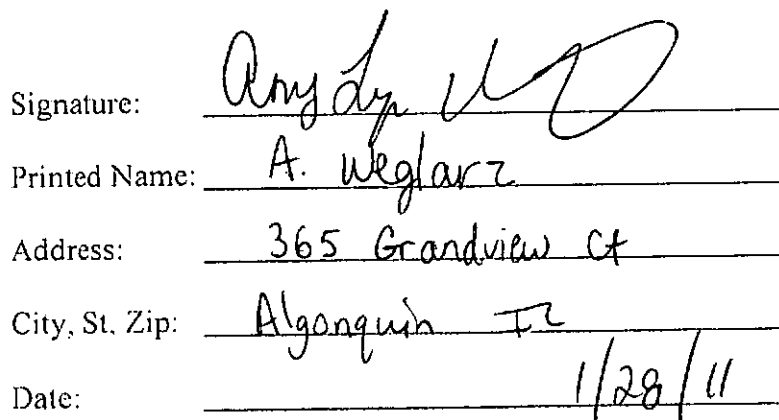 Signature: Amy
Printed Name: A. Weglarz
Address: 365 Grandview Ct
City, St. Zip: Algonquin IL
Date: 1/28/11